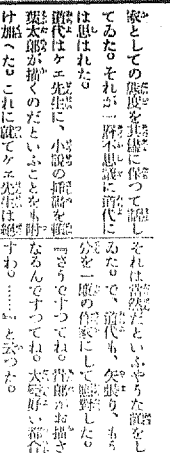 家としての態度を其儘に保つて話し
てゐた。それが一層不思議に道代に
は思はれた。
道代はケエ先生に、小説の挿畫を頼
葉太郎が描くのだといふことも附
け加へた。これに就てケエ先生は絕
それは當然だといふやうな顏をし
ゐた。で、道代も、矢張り、もう
分を一應の作家にして應對した。
『さうですつてね。貴郎がお描き
なるんですつてね。大變好い都合
すわ。……』と云つた。